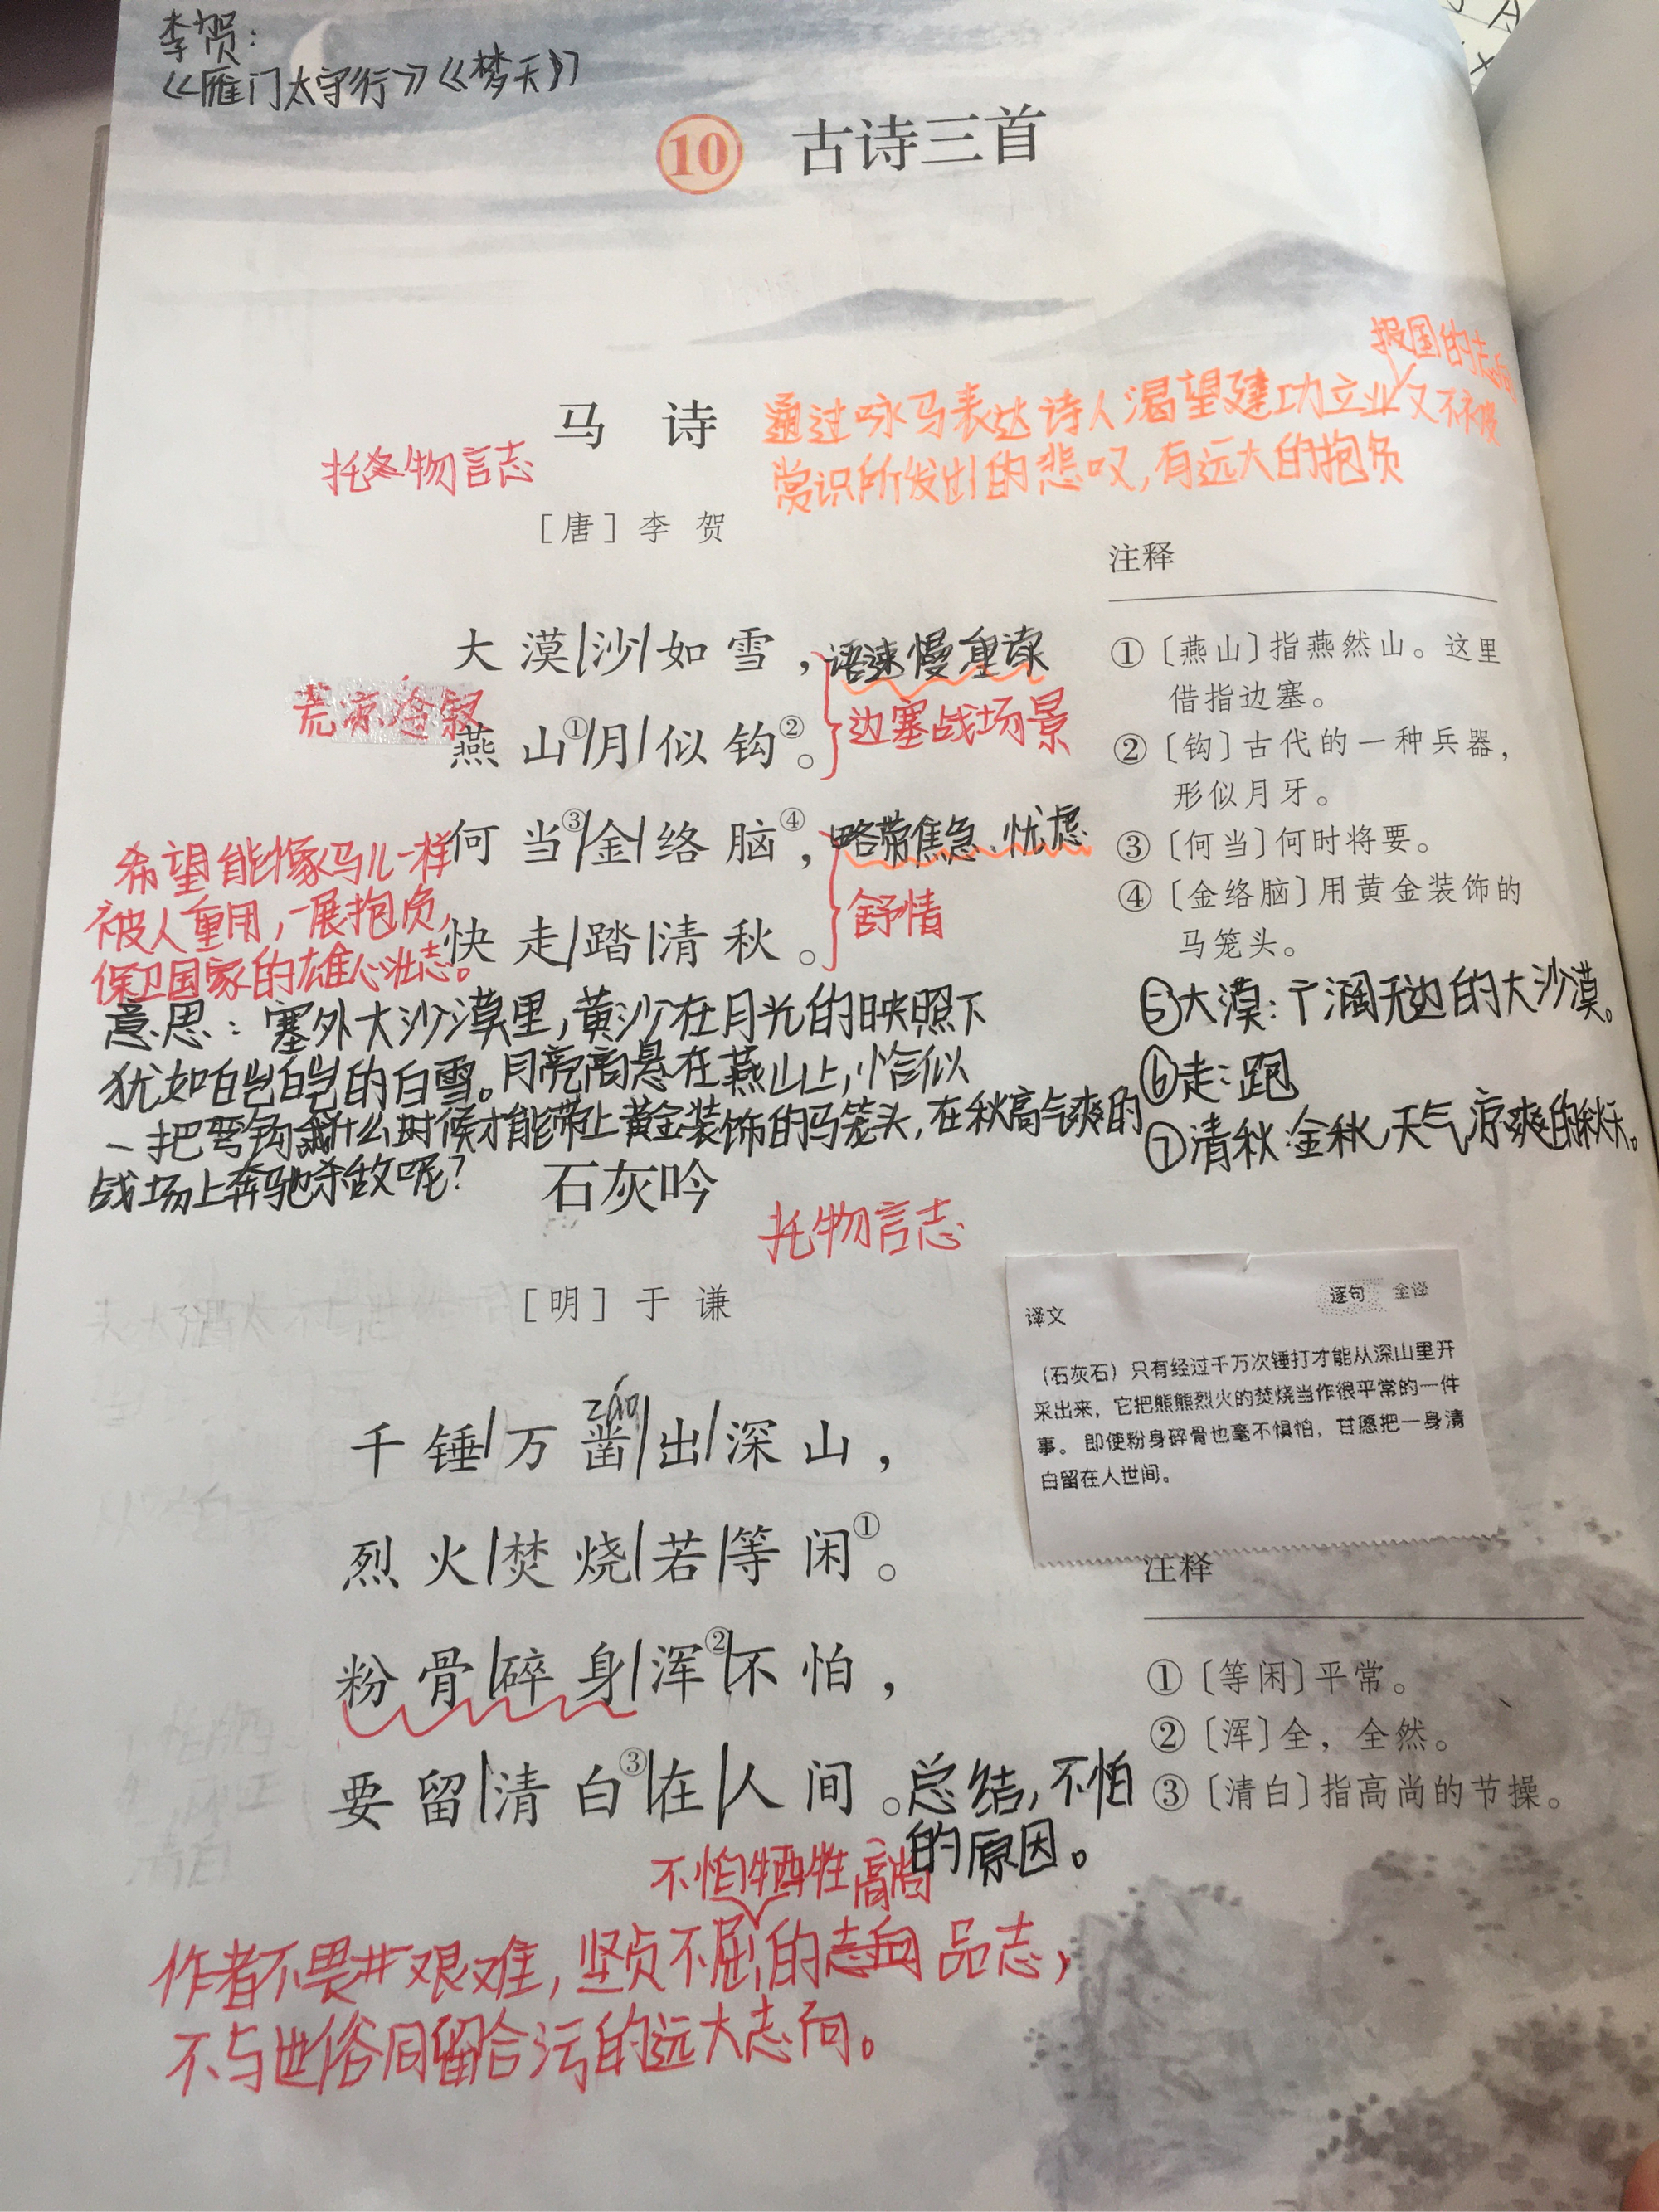 李贺：
《雁门太守行》《梦天》
10 古诗三首
报国的志向
马诗
通过咏马表达诗人渴望建功立业又不被
赏识所发出的悲叹，有远大的抱负
托物言志
［唐］李贺
注释
大漠/沙/如雪，
语速慢 重读
荒凉
燕山①/月/似钩②。
边塞战场景
何当③/金/络脑④，
略带焦急、忧虑
快走/踏/清秋。
舒情
希望能像马儿一样
被人重用，一展抱负，
保卫国家的雄心壮志。
①〔燕山〕指燕然山。这里
借指边塞。
②〔钩〕古代的一种兵器，
形似月牙。
③〔何当〕何时将要。
④〔金络脑〕用黄金装饰的
马笼头。
⑤大漠：广阔无边的大沙漠。
⑥走：跑
⑦清秋：金秋，天气凉爽的秋天。
意思：塞外大沙漠里，黄沙在月光的映照下
犹如皑皑的白雪。月亮高悬在燕山上，恰似
一把弯钩。什么时候才能带上黄金装饰的马笼头，在秋高气爽的
战场上奔驰杀敌呢？
石灰吟
托物言志
［明］于谦
逐句 全译
译文
（石灰石）只有经过千万次锤打才能从深山里开
采出来，它把熊熊烈火的焚烧当作很平常的一件
事。即使粉身碎骨也毫不惧怕，甘愿把一身清
白留在人世间。
záo
千锤/万凿/出/深山，
烈火/焚烧/若/等闲①。
粉骨/碎身/浑②/不怕，
要留/清白③/在/人间。
总结，不怕
的原因。
注释
①〔等闲〕平常。
②〔浑〕全，全然。
③〔清白〕指高尚的节操。
不怕牺牲 高尚
作者不畏艰难，坚贞不屈的志向 品志，
不与世俗同留合污的远大志向。